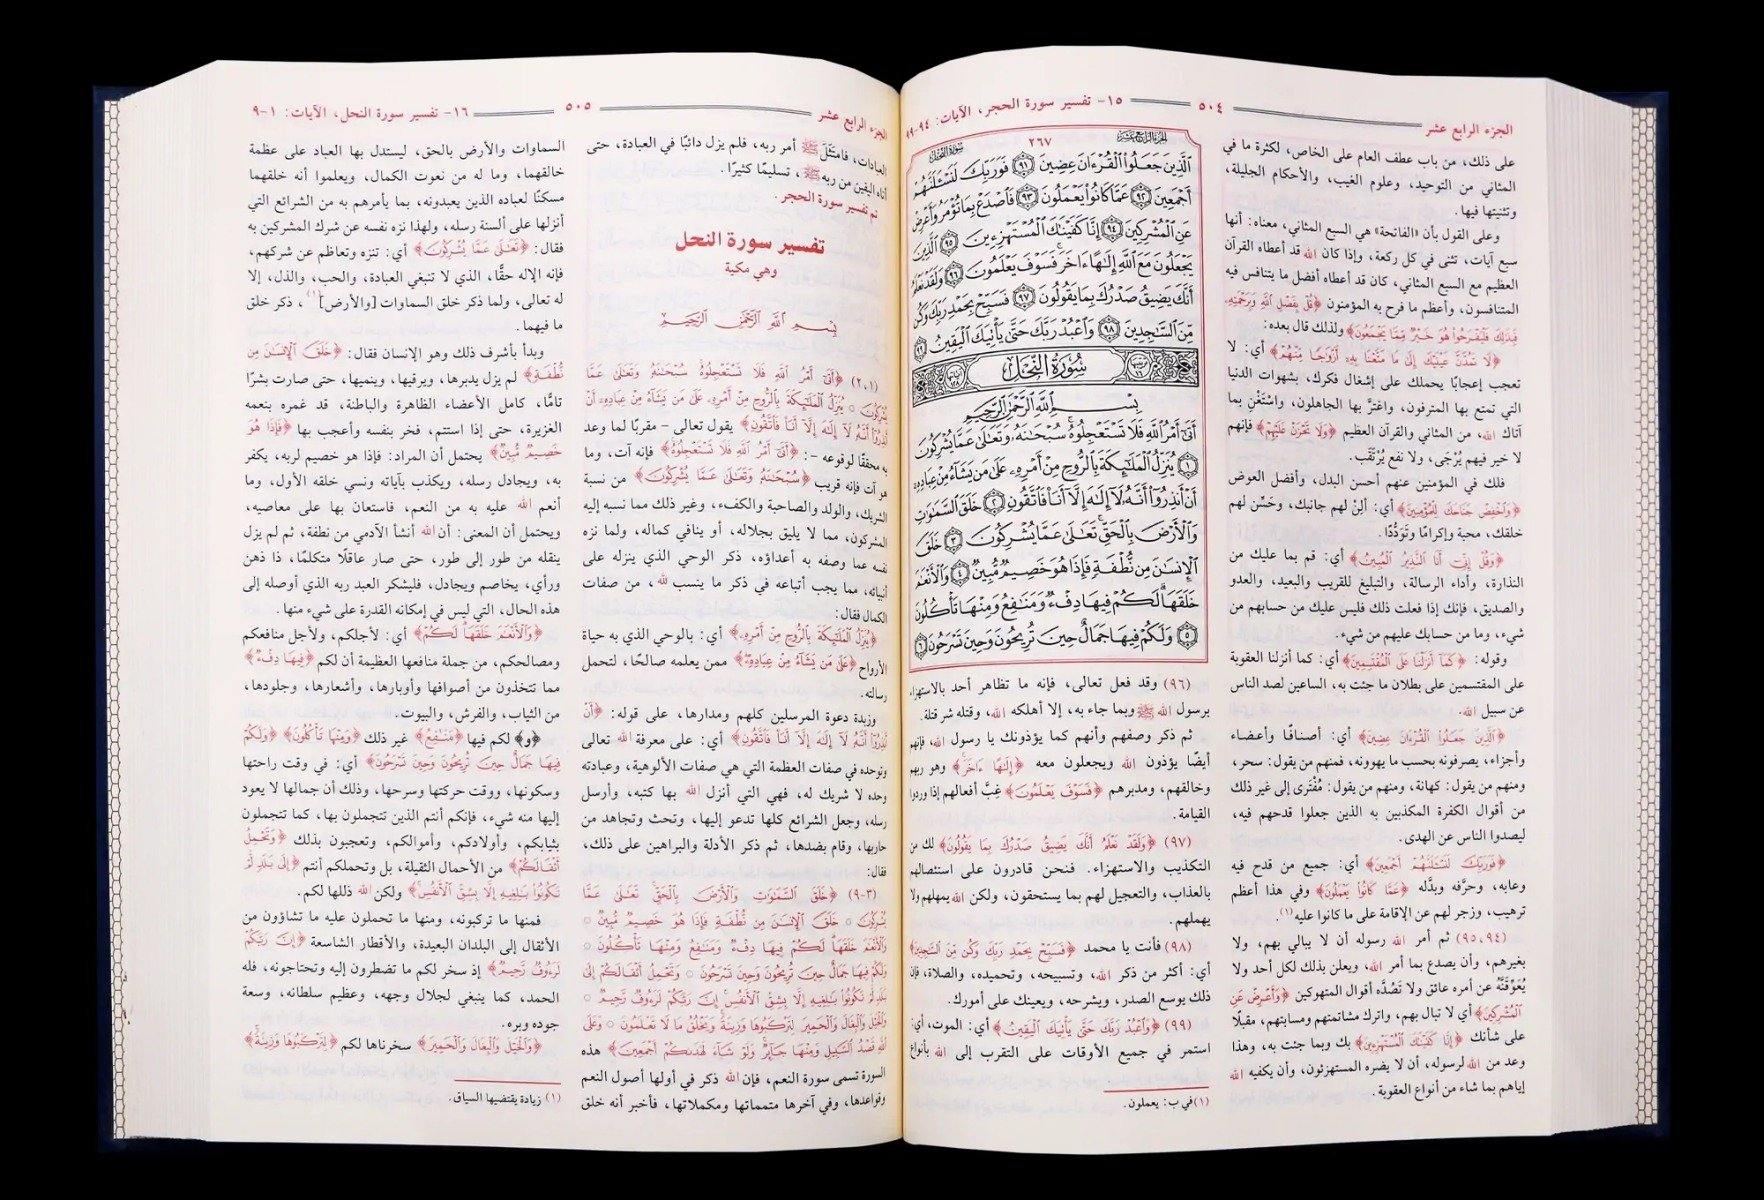 الجزء الرابع عشر
٥٠٤
١٥- تفسير سورة الحجر، الآيات: ٩٤-٩٩
على ذلك، من باب عطف العام على الخاص، لكثرة ما في
المثاني من التوحيد، وعلوم الغيب، والأحكام الجليلة،
وتثنيتها فيها.
وعلى القول بأن «الفاتحة» هي السبع المثاني، معناه: أنها
سبع آيات، تثنى في كل ركعة، وإذا كان الله قد أعطاه القرآن
العظيم مع السبع المثاني، كان قد أعطاه أفضل ما يتنافس فيه
المتنافسون، وأعظم ما فرح به المؤمنون ﴿قُلْ بِفَضْلِ اللَّهِ وَبِرَحْمَتِهِ
فَبِذَلِكَ فَلْيَفْرَحُوا هُوَ خَيْرٌ مِمَّا يَجْمَعُونَ﴾ ولذلك قال بعده:
﴿لَا تَمُدَّنَّ عَيْنَيْكَ إِلَى مَا مَتَّعْنَا بِهِ أَزْوَاجًا مِنْهُمْ﴾ أي: لا
تعجب إعجابا يحملك على إشغال فكرك، بشهوات الدنيا
التي تمتع بها المترفون، واغترَّ بها الجاهلون، واستَغْنِ بما
آتاك الله، من المثاني والقرآن العظيم ﴿وَلَا تَحْزَنْ عَلَيْهِمْ﴾ فإنهم
لا خير فيهم يُرْجَى، ولا نفع يُرْتَقَب.
فلك في المؤمنين عنهم أحسن البدل، وأفضل العوض
﴿وَاخْفِضْ جَنَاحَكَ لِلْمُؤْمِنِينَ﴾ أي: ألِنْ لهم جانبك، وحَسِّن لهم
خلقك، محبة وإكرامًا وتَوَدُّدًا.
﴿وَقُلْ إِنِّي أَنَا النَّذِيرُ الْمُبِينُ﴾ أي: قم بما عليك من
النذارة، وأداء الرسالة، والتبليغ للقريب والبعيد، والعدو
والصديق، فإنك إذا فعلت ذلك فليس عليك من حسابهم من
شيء، وما من حسابك عليهم من شيء.
وقوله: ﴿كَمَا أَنْزَلْنَا عَلَى الْمُقْتَسِمِينَ﴾ أي: كما أنزلنا العقوبة
على المقتسمين على بطلان ما جئت به، الساعين لصد الناس
عن سبيل الله.
﴿الَّذِينَ جَعَلُوا الْقُرْءَانَ عِضِينَ﴾ أي: أصنافًا وأعضاء
وأجزاء، يصرفونه بحسب ما يهوونه، فمنهم من يقول: سحر،
ومنهم من يقول: كهانة، ومنهم من يقول: مُفْتَرى إلى غير ذلك
من أقوال الكفرة المكذبين به الذين جعلوا قدحهم فيه،
ليصدوا الناس عن الهدى.
﴿فَوَرَبِّكَ لَنَسْأَلَنَّهُمْ أَجْمَعِينَ﴾ أي: جميع من قدح فيه
وعابه، وحرَّفه وبدَّله ﴿عَمَّا كَانُوا يَعْمَلُونَ﴾ وفي هذا أعظم
ترهيب، وزجر لهم عن الإقامة على ما كانوا عليه(١).
(٩٥،٩٤) ثم أمر الله رسوله أن لا يبالي بهم، ولا
بغيرهم، وأن يصدع بما أمر الله، ويعلن بذلك لكل أحد ولا
يُعَوِّقَنَّهُ عن أمره عائق ولا تَصُدَّه أقوال المتهوكين ﴿وَأَعْرِضْ عَنِ
الْمُشْرِكِينَ﴾ أي لا تبال بهم، واترك مشاتمتهم ومسابتهم، مقبلًا
على شأنك ﴿إِنَّا كَفَيْنَاكَ الْمُسْتَهْزِئِينَ﴾ بك وبما جئت به، وهذا
وعد من الله لرسوله، أن لا يضره المستهزئون، وأن يكفيه الله
إياهم بما شاء من أنواع العقوبة.
الجزء الرابع عشر
٢٦٧
الَّذِينَ جَعَلُوا الْقُرْءَانَ عِضِينَ ٩١ فَوَرَبِّكَ لَنَسْـَٔلَنَّهُمْ
أَجْمَعِينَ ٩٢ عَمَّا كَانُوا يَعْمَلُونَ ٩٣ فَاصْدَعْ بِمَا تُؤْمَرُ وَأَعْرِضْ
عَنِ الْمُشْرِكِينَ ٩٤ إِنَّا كَفَيْنَاكَ الْمُسْتَهْزِءِينَ ٩٥ الَّذِينَ
يَجْعَلُونَ مَعَ اللَّهِ إِلَهًا ءَاخَرَ فَسَوْفَ يَعْلَمُونَ ٩٦ وَلَقَدْ نَعْلَمُ
أَنَّكَ يَضِيقُ صَدْرُكَ بِمَا يَقُولُونَ ٩٧ فَسَبِّحْ بِحَمْدِ رَبِّكَ وَكُنْ
مِنَ السَّاجِدِينَ ٩٨ وَاعْبُدْ رَبَّكَ حَتَّى يَأْتِيَكَ الْيَقِينُ ٩٩
سُورَةُ النَّحْلِ
بِسْمِ اللَّهِ الرَّحْمَنِ الرَّحِيمِ
أَتَى أَمْرُ اللَّهِ فَلَا تَسْتَعْجِلُوهُ سُبْحَانَهُ وَتَعَالَى عَمَّا يُشْرِكُونَ
١ يُنَزِّلُ الْمَلَائِكَةَ بِالرُّوحِ مِنْ أَمْرِهِ عَلَى مَنْ يَشَاءُ مِنْ عِبَادِهِ
أَنْ أَنْذِرُوا أَنَّهُ لَا إِلَهَ إِلَّا أَنَا فَاتَّقُونِ ٢ خَلَقَ السَّمَاوَاتِ
وَالْأَرْضَ بِالْحَقِّ تَعَالَى عَمَّا يُشْرِكُونَ ٣ خَلَقَ
الْإِنْسَانَ مِنْ نُطْفَةٍ فَإِذَا هُوَ خَصِيمٌ مُبِينٌ ٤ وَالْأَنْعَامَ
خَلَقَهَا لَكُمْ فِيهَا دِفْءٌ وَمَنَافِعُ وَمِنْهَا تَأْكُلُونَ
٥ وَلَكُمْ فِيهَا جَمَالٌ حِينَ تُرِيحُونَ وَحِينَ تَسْرَحُونَ ٦
(٩٦) وقد فعل تعالى، فإنه ما تظاهر أحد بالاستهزاء
برسول الله ﷺ وبما جاء به، إلا أهلكه الله، وقتله شر قتلة.
ثم ذكر وصفهم وأنهم كما يؤذونك يا رسول الله، فإنهم
أيضًا يؤذون الله ويجعلون معه ﴿إِلَهًا ءَاخَرَ﴾ وهو ربهم
وخالقهم، ومدبرهم ﴿فَسَوْفَ يَعْلَمُونَ﴾ غِبَّ أفعالهم إذا وردوا
القيامة.
(٩٧) ﴿وَلَقَدْ نَعْلَمُ أَنَّكَ يَضِيقُ صَدْرُكَ بِمَا يَقُولُونَ﴾ لك من
التكذيب والاستهزاء. فنحن قادرون على استئصالهم
بالعذاب، والتعجيل لهم بما يستحقون، ولكن الله يمهلهم ولا
يهملهم.
(٩٨) فأنت يا محمد ﴿فَسَبِّحْ بِحَمْدِ رَبِّكَ وَكُنْ مِنَ السَّاجِدِينَ﴾
أي: أكثر من ذكر الله، وتسبيحه، وتحميده، والصلاة، فإن
ذلك يوسع الصدر، ويشرحه، ويعينك على أمورك.
(٩٩) ﴿وَاعْبُدْ رَبَّكَ حَتَّى يَأْتِيَكَ الْيَقِينُ﴾ أي: الموت، أي:
استمر في جميع الأوقات على التقرب إلى الله بأنواع
(١) في ب: يعملون.
الجزء الرابع عشر
٥٠٥
١٦- تفسير سورة النحل، الآيات: ١-٩
العبادات، فامتَثَلَ ﷺ أمر ربه، فلم يزل دائبًا في العبادة، حتى
أتاه اليقين من ربه ﷺ، تسليمًا كثيرًا.
تم تفسير سورة الحجر.
تفسير سورة النحل
وهي مكية
بِسْمِ اللَّهِ الرَّحْمَنِ الرَّحِيمِ
(٢،١) ﴿أَتَى أَمْرُ اللَّهِ فَلَا تَسْتَعْجِلُوهُ سُبْحَانَهُ وَتَعَالَى عَمَّا
يُشْرِكُونَ ○ يُنَزِّلُ الْمَلَائِكَةَ بِالرُّوحِ مِنْ أَمْرِهِ عَلَى مَنْ يَشَاءُ مِنْ عِبَادِهِ أَنْ
أَنْذِرُوا أَنَّهُ لَا إِلَهَ إِلَّا أَنَا فَاتَّقُونِ﴾ يقول تعالى - مقربًا لما وعد
به محققًا لوقوعه -: ﴿أَتَى أَمْرُ اللَّهِ فَلَا تَسْتَعْجِلُوهُ﴾ فإنه آت، وما
هو آت فإنه قريب ﴿سُبْحَانَهُ وَتَعَالَى عَمَّا يُشْرِكُونَ﴾ من نسبة
الشريك، والولد والصاحبة والكفء، وغير ذلك مما نسبه إليه
المشركون، مما لا يليق بجلاله، أو ينافي كماله، ولما نزه
نفسه عما وصفه به أعداؤه، ذكر الوحي الذي ينزله على
أنبيائه، مما يجب أتباعه في ذكر ما ينسب لله، من صفات
الكمال فقال:
﴿يُنَزِّلُ الْمَلَائِكَةَ بِالرُّوحِ مِنْ أَمْرِهِ﴾ أي: بالوحي الذي به حياة
الأرواح ﴿عَلَى مَنْ يَشَاءُ مِنْ عِبَادِهِ﴾ ممن يعلمه صالحًا، لتحمل
رسالته.
وزبدة دعوة المرسلين كلهم ومدارها، على قوله: ﴿أَنْ
أَنْذِرُوا أَنَّهُ لَا إِلَهَ إِلَّا أَنَا فَاتَّقُونِ﴾ أي: على معرفة الله تعالى
وتوحده في صفات العظمة التي هي صفات الألوهية، وعبادته
وحده لا شريك له، فهي التي أنزل الله بها كتبه، وأرسل
رسله، وجعل الشرائع كلها تدعو إليها، وتحث وتجاهد من
حاربها، وقام بضدها، ثم ذكر الأدلة والبراهين على ذلك،
فقال:
(٩-٣) ﴿خَلَقَ السَّمَاوَاتِ وَالْأَرْضَ بِالْحَقِّ تَعَالَى عَمَّا
يُشْرِكُونَ ○ خَلَقَ الْإِنْسَانَ مِنْ نُطْفَةٍ فَإِذَا هُوَ خَصِيمٌ مُبِينٌ ○
وَالْأَنْعَامَ خَلَقَهَا لَكُمْ فِيهَا دِفْءٌ وَمَنَافِعُ وَمِنْهَا تَأْكُلُونَ ○
وَلَكُمْ فِيهَا جَمَالٌ حِينَ تُرِيحُونَ وَحِينَ تَسْرَحُونَ ○ وَتَحْمِلُ أَثْقَالَكُمْ إِلَى
بَلَدٍ لَمْ تَكُونُوا بَالِغِيهِ إِلَّا بِشِقِّ الْأَنْفُسِ إِنَّ رَبَّكُمْ لَرَءُوفٌ رَحِيمٌ ○
وَالْخَيْلَ وَالْبِغَالَ وَالْحَمِيرَ لِتَرْكَبُوهَا وَزِينَةً وَيَخْلُقُ مَا لَا تَعْلَمُونَ ○ وَعَلَى
اللَّهِ قَصْدُ السَّبِيلِ وَمِنْهَا جَائِرٌ وَلَوْ شَاءَ لَهَدَاكُمْ أَجْمَعِينَ﴾ هذه
السورة تسمى سورة النعم، فإن الله ذكر في أولها أصول النعم
وقواعدها، وفي آخرها متمماتها ومكملاتها، فأخبر أنه خلق
السماوات والأرض بالحق، ليستدل بها العباد على عظمة
خالقهما، وما له من نعوت الكمال، ويعلموا أنه خلقهما
مسكنًا لعباده الذين يعبدونه، بما يأمرهم به من الشرائع التي
أنزلها على ألسنة رسله، ولهذا نزه نفسه عن شرك المشركين به
فقال: ﴿تَعَالَى عَمَّا يُشْرِكُونَ﴾ أي: تنزه وتعاظم عن شركهم،
فإنه الإله حقًّا، الذي لا تنبغي العبادة، والحب، والذل، إلا
له تعالى، ولما ذكر خلق السماوات [والأرض](١)، ذكر خلق
ما فيهما.
وبدأ بأشرف ذلك وهو الإنسان فقال: ﴿خَلَقَ الْإِنْسَانَ مِنْ
نُطْفَةٍ﴾ لم يزل يدبرها، ويرقيها، وينميها، حتى صارت بشرًا
تامًّا، كامل الأعضاء الظاهرة والباطنة، قد غمره بنعمه
الغزيرة، حتى إذا استتم، فخر بنفسه وأعجب بها ﴿فَإِذَا هُوَ
خَصِيمٌ مُبِينٌ﴾ يحتمل أن المراد: فإذا هو خصيم لربه، يكفر
به، ويجادل رسله، ويكذب بآياته ونسي خلقه الأول، وما
أنعم الله عليه به من النعم، فاستعان بها على معاصيه،
ويحتمل أن المعنى: أن الله أنشأ الآدمي من نطفة، ثم لم يزل
ينقله من طور إلى طور، حتى صار عاقلًا متكلمًا، ذا ذهن
ورأي، يخاصم ويجادل، فليشكر العبد ربه الذي أوصله إلى
هذه الحال، التي ليس في إمكانه القدرة على شيء منها.
﴿وَالْأَنْعَامَ خَلَقَهَا لَكُمْ﴾ أي: لأجلكم، ولأجل منافعكم
ومصالحكم، من جملة منافعها العظيمة أن لكم ﴿فِيهَا دِفْءٌ﴾
مما تتخذون من أصوافها وأوبارها، وأشعارها، وجلودها،
من الثياب، والفرش، والبيوت.
﴿و﴾ لكم فيها ﴿مَنَافِعُ﴾ غير ذلك ﴿وَمِنْهَا تَأْكُلُونَ﴾ ﴿وَلَكُمْ
فِيهَا جَمَالٌ حِينَ تُرِيحُونَ وَحِينَ تَسْرَحُونَ﴾ أي: في وقت راحتها
وسكونها، ووقت حركتها وسرحها، وذلك أن جمالها لا يعود
إليها منه شيء، فإنكم أنتم الذين تتجملون بها، كما تتجملون
بثيابكم، وأولادكم، وأموالكم، وتعجبون بذلك ﴿وَتَحْمِلُ
أَثْقَالَكُمْ﴾ من الأحمال الثقيلة، بل وتحملكم أنتم ﴿إِلَى بَلَدٍ لَمْ
تَكُونُوا بَالِغِيهِ إِلَّا بِشِقِّ الْأَنْفُسِ﴾ ولكن الله ذللها لكم.
فمنها ما تركبونه، ومنها ما تحملون عليه ما تشاؤون من
الأثقال إلى البلدان البعيدة، والأقطار الشاسعة ﴿إِنَّ رَبَّكُمْ
لَرَءُوفٌ رَحِيمٌ﴾ إذ سخر لكم ما تضطرون إليه وتحتاجونه، فله
الحمد، كما ينبغي لجلال وجهه، وعظيم سلطانه، وسعة
جوده وبره.
﴿وَالْخَيْلَ وَالْبِغَالَ وَالْحَمِيرَ﴾ سخرناها لكم ﴿لِتَرْكَبُوهَا وَزِينَةً﴾
(١) زيادة يقتضيها السياق.